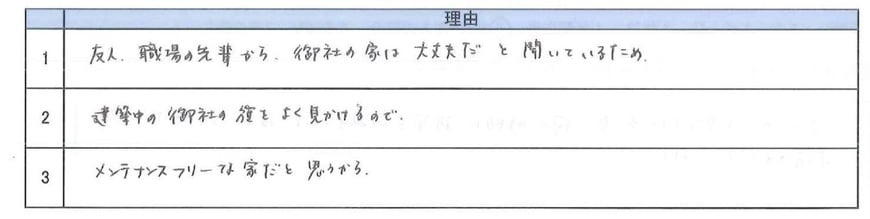 理由
1 友人、職場の先輩から、御社の家は大丈夫だと聞いているため。
2 建築中の御社の旗をよく見かけるので。
3 メンテナンスフリーな家だと思うから。